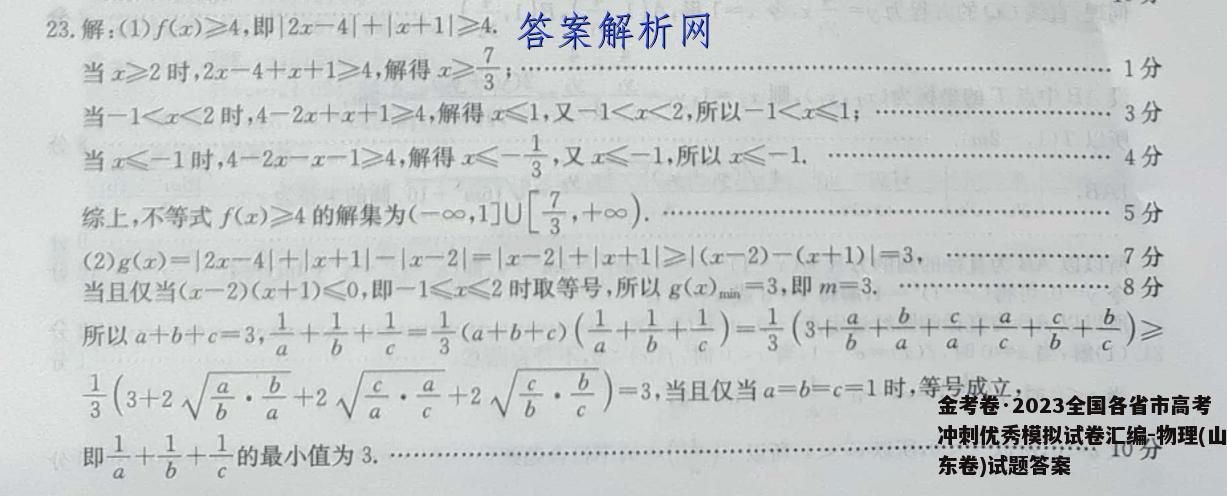 23.解:(1)f(x)≥4,即|2x-4|+|x+1|≥4.
答案解析网
当x≥2时,2x-4+x+1≥4,解得x≥7/3;……1分
当-1<x<2时,4-2x+x+1≥4,解得x≤1,又-1<x<2,所以-1<x≤1;……3分
当x≤-1时,4-2x-x-1≥4,解得x≤-1/3,又x≤-1,所以x≤-1.……4分
综上,不等式f(x)≥4的解集为(-∞,1]∪[7/3,+∞).……5分
(2)g(x)=|2x-4|+|x+1|-|x-2|=|x-2|+|x+1|≥|(x-2)-(x+1)|=3,……7分
当且仅当(x-2)(x+1)≤0,即-1≤x≤2时取等号,所以g(x)min=3,即m=3.……8分
所以a+b+c=3,1/a+1/b+1/c=1/3(a+b+c)(1/a+1/b+1/c)=1/3(3+a/b+b/a+c/a+a/c+c/b+b/c)≥
1/3(3+2√(a/b·b/a)+2√(c/a·a/c)+2√(c/b·b/c))=3,当且仅当a=b=c=1时,等号成立,
即1/a+1/b+1/c的最小值为3.……10分
金考卷·2023全国各省市高考
冲刺优秀模拟试卷汇编-物理(山
东卷)试题答案